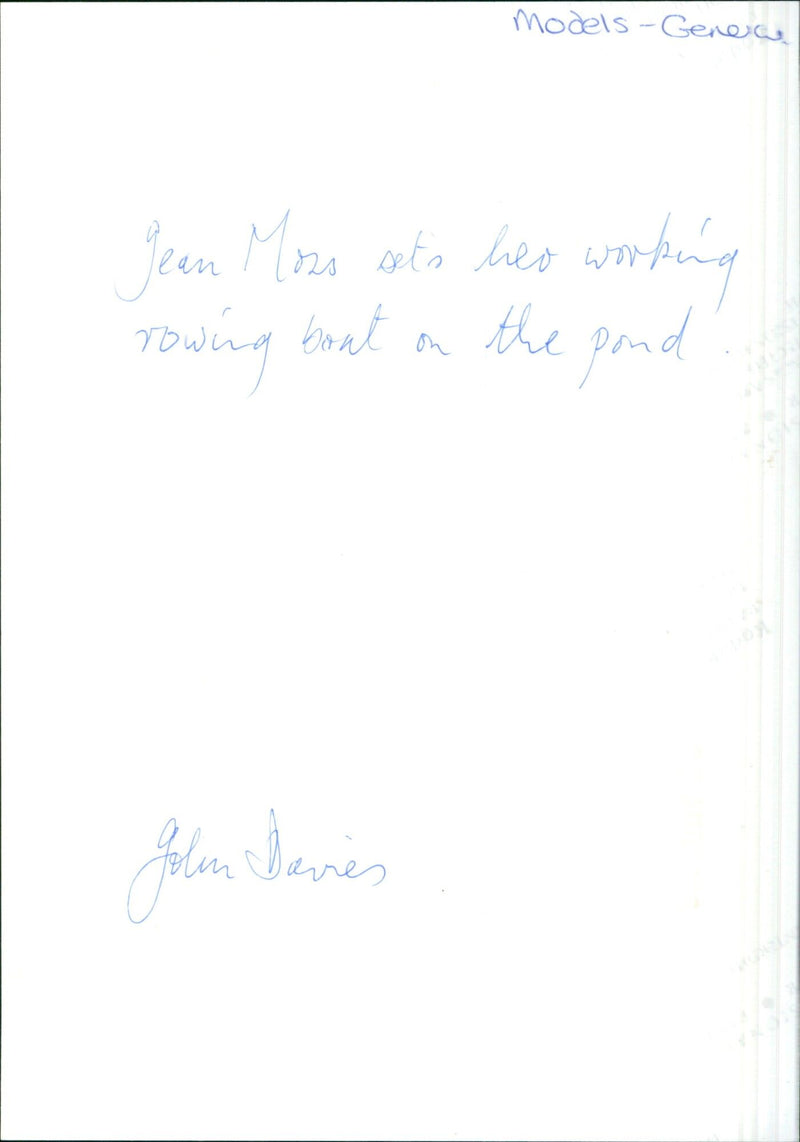 Models - General
Jean Moss sets her working
rowing boat on the pond.
John Davies